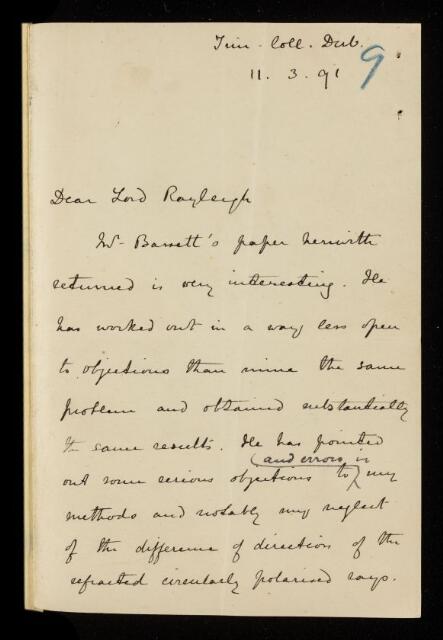 Trin. Coll. Dub.
11. 3. 91
9
Dear Lord Rayleigh
Mr Bassett's paper herewith
returned is very interesting. He
has worked out in a way less open
to objections than mine the same
problem and obtained substantially
the same results. He has pointed
(and errors in
out some serious objections to) my
methods and notably my neglect
of the difference of direction of the
refracted circularly polarised rays.